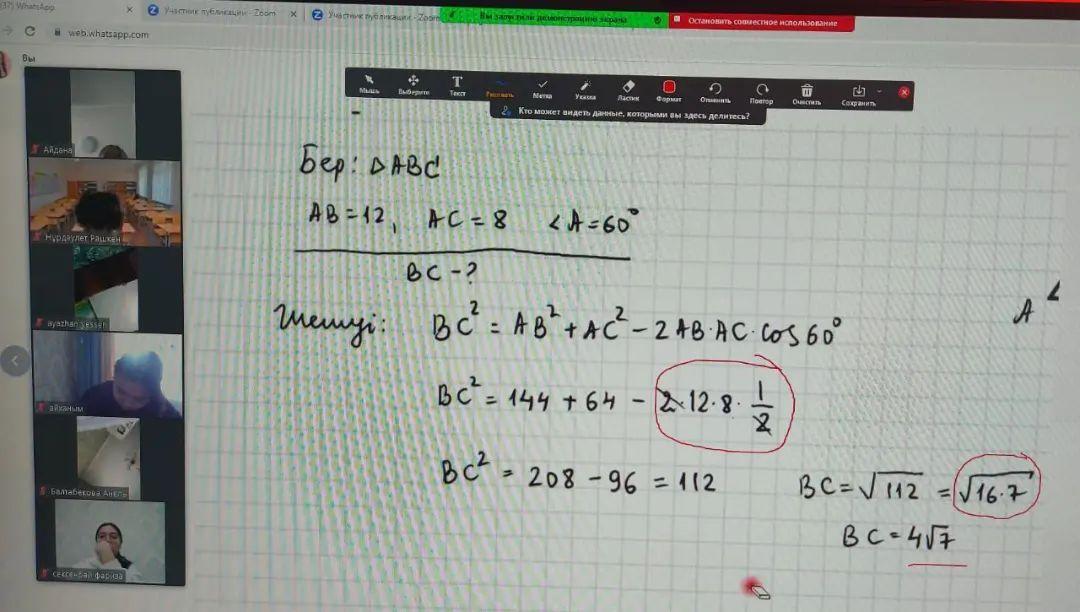 (37) WhatsApp
Участник публикации - Zoom
Участник публикации - Zoom
Вы запустили демонстрацию экрана
Остановить совместное использование
web.whatsapp.com
Вы
Мышь
Выберите
Текст
Рисовать
Метка
Указка
Ластик
Формат
Отменить
Повтор
Очистить
Сохранить
Кто может видеть данные, которыми вы здесь делитесь?
Айдана
Нұрдаулет Рашкен
ayazhan yessen
айханым
Балтабекова Анель
сексенбай фариза
Бер: ΔABC
AB=12, AC=8 <A=60°
BC-?
Шешуі: BC²=AB²+AC²-2AB·AC·cos60°
A
BC²=144+64-2·12·8·1/2
BC²=208-96=112
BC=√112=√16·7
BC=4√7